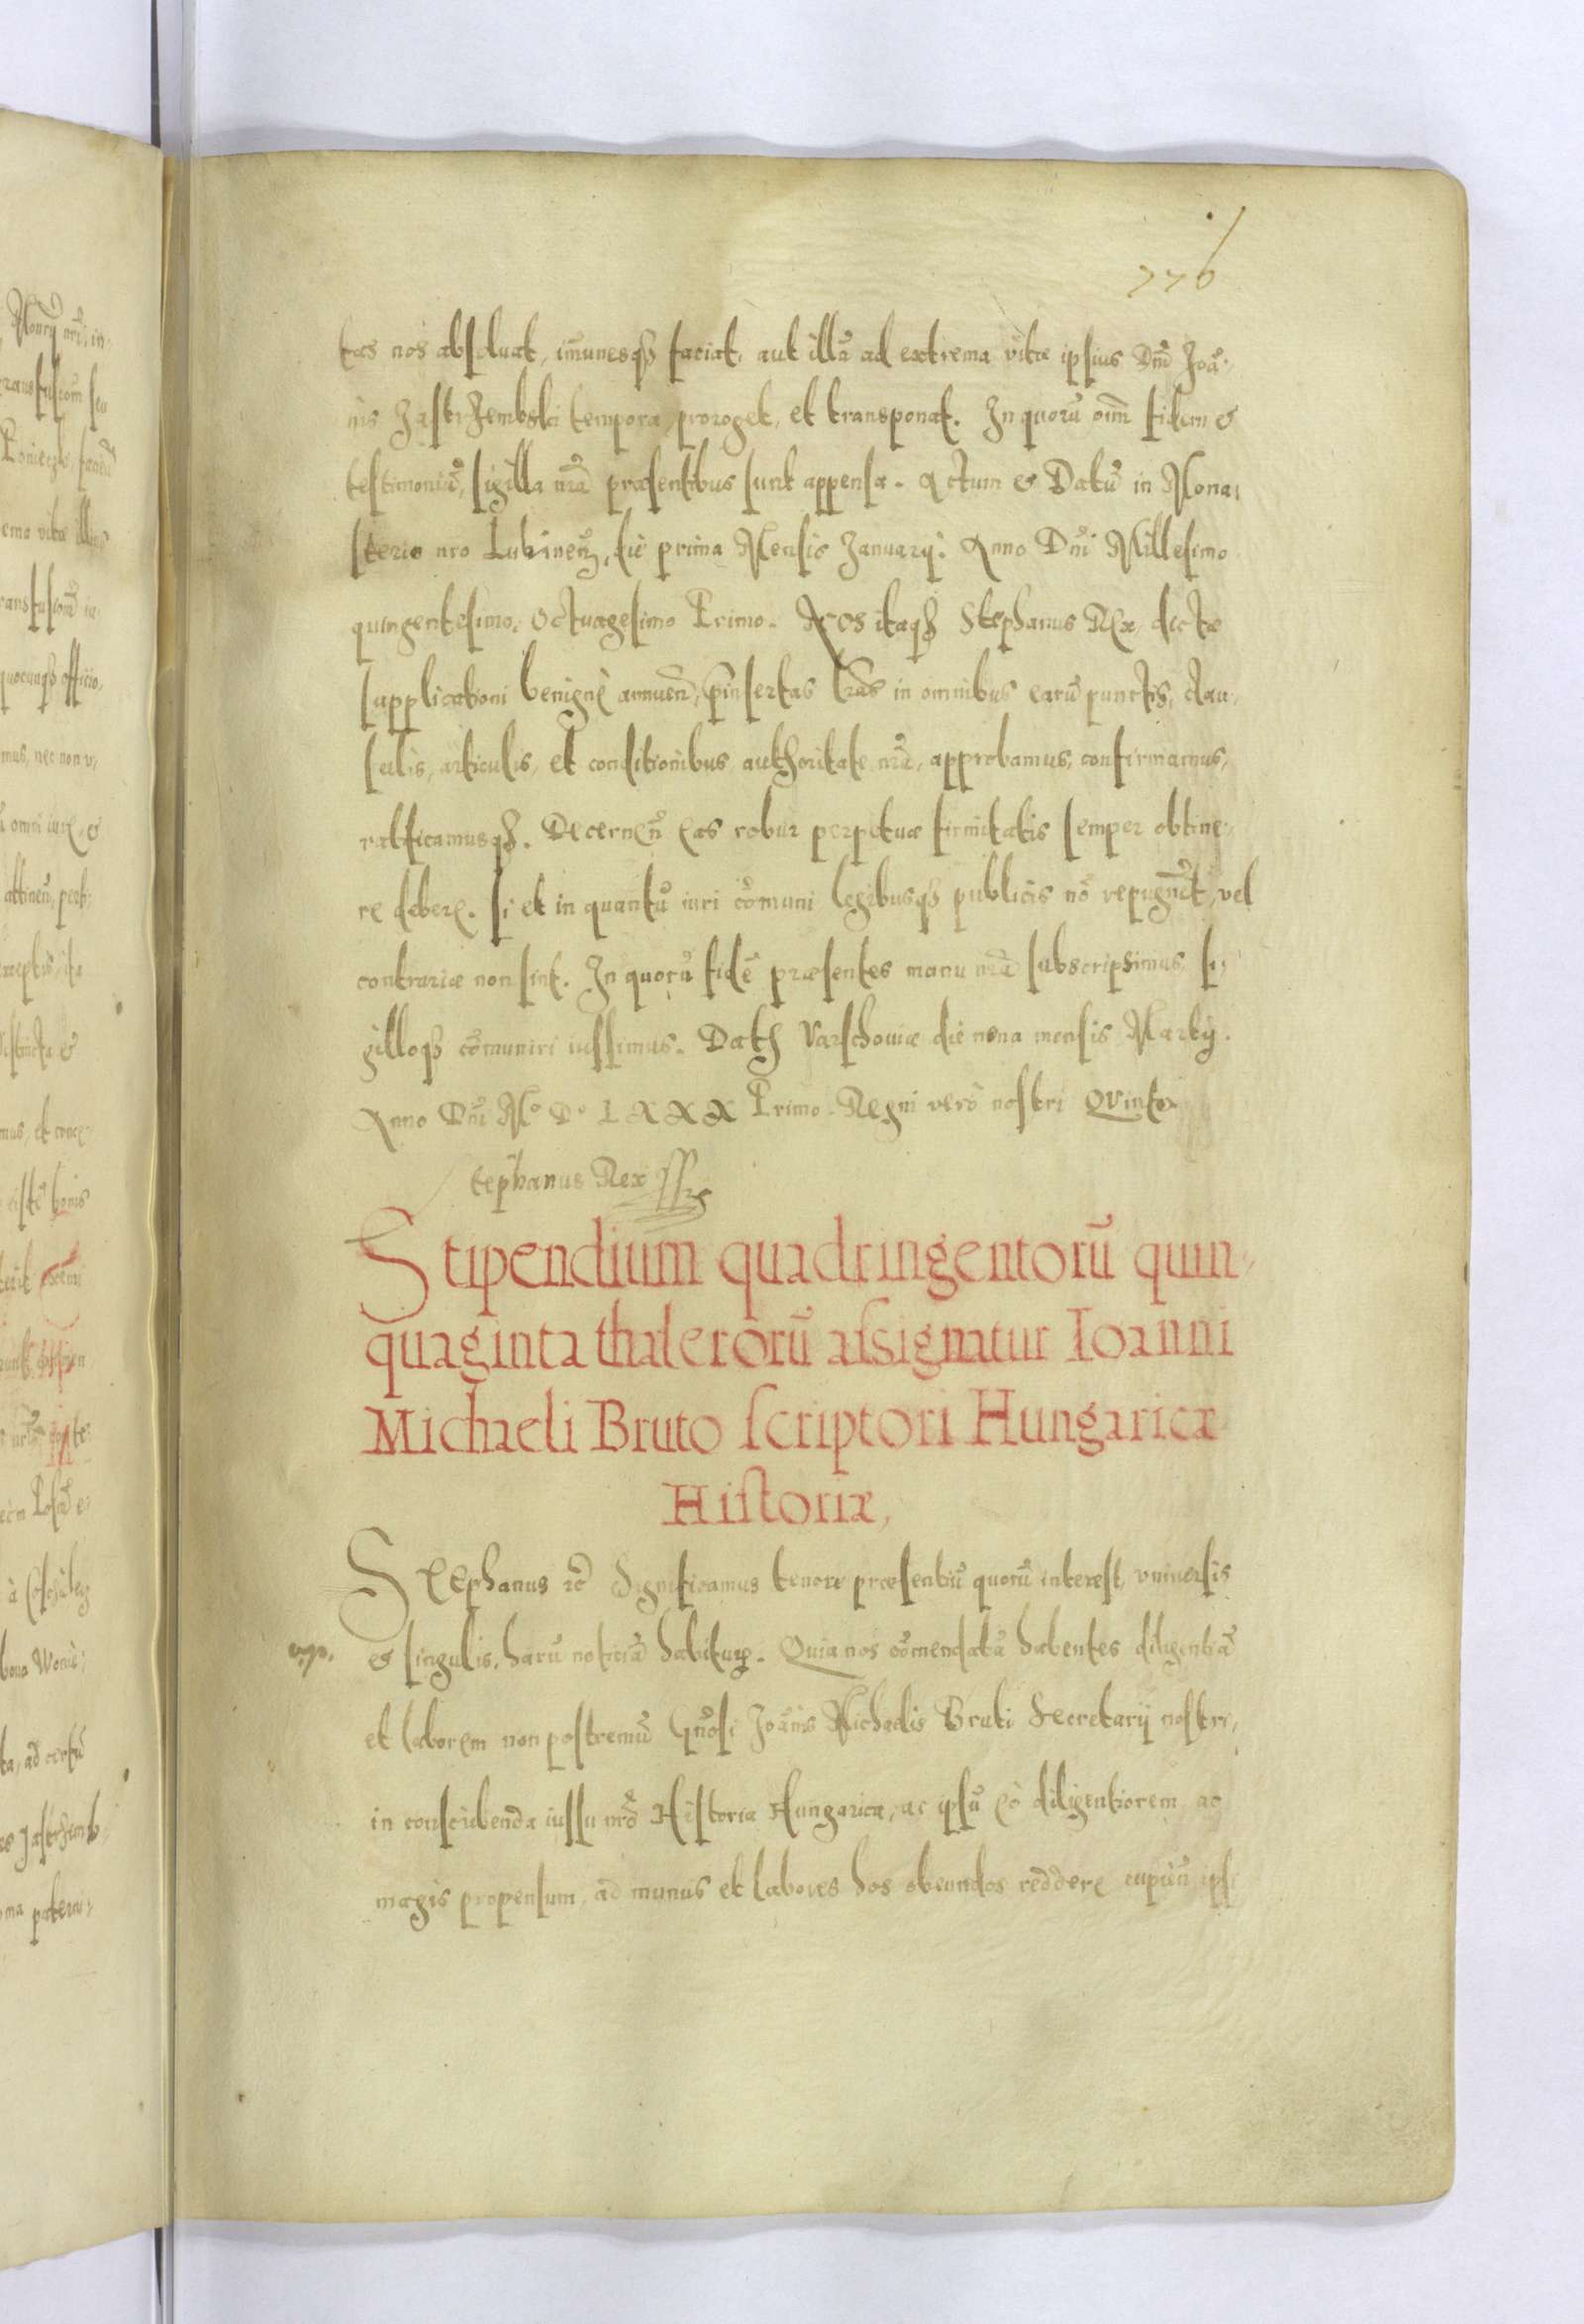 776
tas nos absoluat, im̃unesqꝫ faciat, aut illũ ad extrema vitæ ipsius Dñi Joã-
nis Jastrzembski tempora proroget, et transponat. In quorũ oim̃ fidem &
testimoniũ, sigilla nr̃a præsentibus sunt appensa. Actum & Datũ in Mona-
sterio nro Lubineñ, die prima Mensis Januarij. Anno Dñi Millesimo
quingentesimo, Octuagesimo Primo. Nos itaqꝫ Stephanus Rex, dictæ
supplicationi benignè annueñ, p̃insertas lr̃as in omnibus earũ punctis, clau-
sulis, articulis, et conditionibus authoritate nr̃a, approbamus, confirmamus,
ratificamusqꝫ. Decerneñ eas robur perpetuæ firmitatis semper obtine-
re debere. si et in quantũ iuri com̃uni legibusqꝫ publicis nõ repugnẽt, vel
contrariæ non sint. In quorũ fidẽ præsentes manu nr̃a subscripsimus, si-
gilloqꝫ com̃uniri iussimus. Datꝫ Varschouiæ die nona mensis Martij.
Anno Dñi Mº Dº LXXX Primo. Regni verò nostri Quinto.
tephanus Rex ssr
Stipendium quadringentorũ quin-
quaginta thalerorũ assignatur Ioanni
Michaeli Bruto scriptori Hungaricæ
Historiæ,
Stephanus ꝛc̃ Significamus tenore præsentiũ quorũ interest, vniuersis
& singulis, harũ noticiã habituꝝ. Quia nos com̃endatã habentes diligentiã
et laborem non postremũ Gñosi Joãnis Michaelis Bruti Secretarij nostri,
in conscribenda iussu nr̃o Historia Hungarica, ac ipsũ eò diligentiorem ac
magis propensum, ad munus et labores hos obeundos reddere cupieñ, ipsi